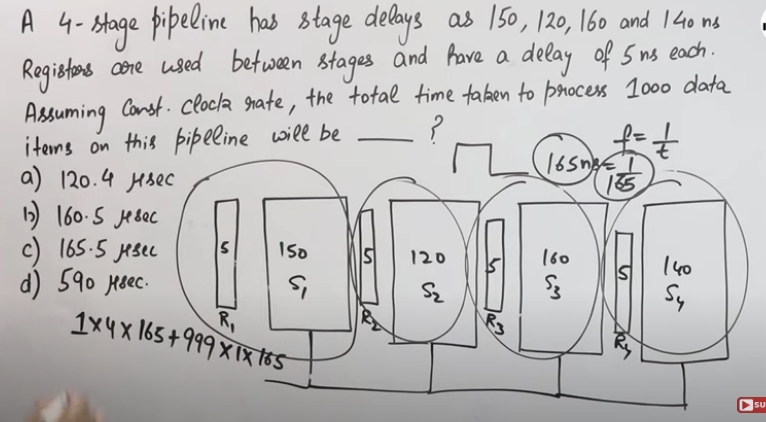 A 4-stage pipeline has stage delays as 150, 120, 160 and 140 ns
Registers are used between stages and have a delay of 5 ns each.
Assuming Const. clock rate, the total time taken to process 1000 data
items on this pipeline will be ____ ?
f = 1/t
165ns = 1/165
a) 120.4 μsec
b) 160.5 μsec
c) 165.5 μsec
d) 590 μsec.
5
150
S1
5
120
S2
5
160
S3
5
140
S4
R1
R2
R3
R4
1×4×165+999×1×165
SU